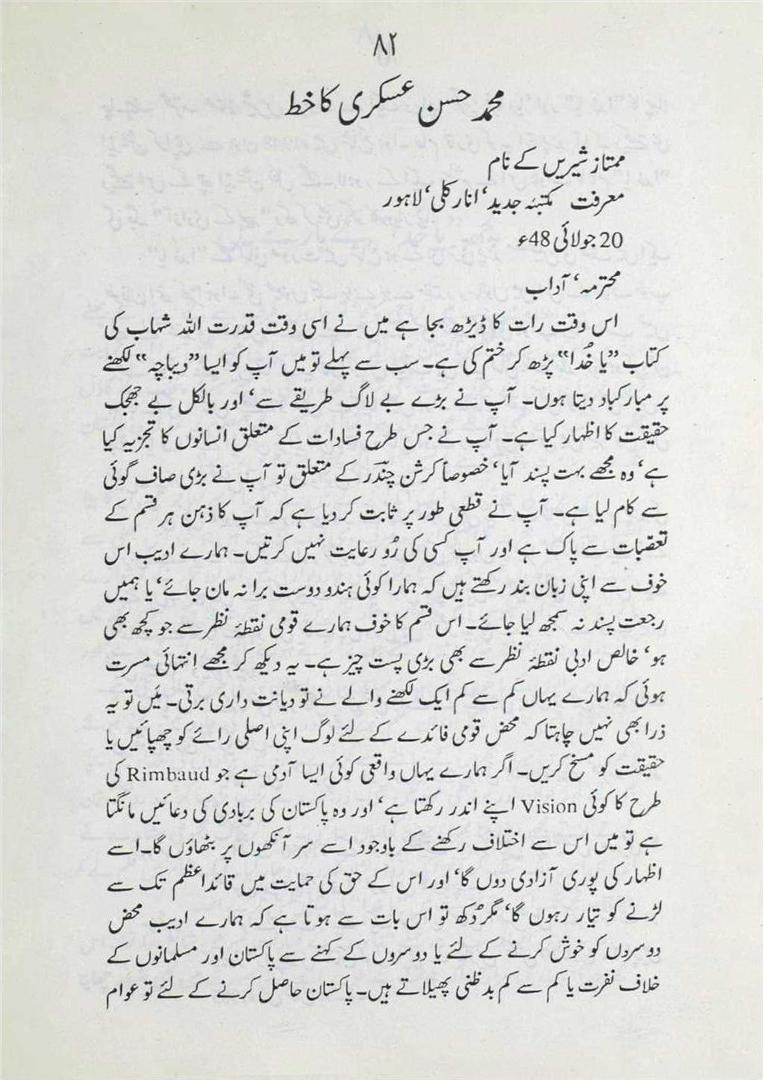 ۸۲
محمد حسن عسکری کا خط
ممتاز شیریں کے نام
معرفت مکتبۂ جدید، انارکلی، لاہور
20 جولائی 48ء
محترمہ، آداب
اس وقت رات کا ڈیڑھ بجا ہے میں نے اسی وقت قدرت اللہ شہاب کی
کتاب ”یا خُدا“ پڑھ کر ختم کی ہے۔ سب سے پہلے تو میں آپ کو ایسا ”دیباچہ“ لکھنے
پر مبارکباد دیتا ہوں۔ آپ نے بڑے بے لاگ طریقے سے، اور بالکل بے جھجک
حقیقت کا اظہار کیا ہے۔ آپ نے جس طرح فسادات کے متعلق انسانوں کا تجزیہ کیا
ہے، وہ مجھے بہت پسند آیا، خصوصاً کرشن چندر کے متعلق تو آپ نے بڑی صاف گوئی
سے کام لیا ہے۔ آپ نے قطعی طور پر ثابت کر دیا ہے کہ آپ کا ذہن ہر قسم کے
تعصّبات سے پاک ہے اور آپ کسی کی رُو رعایت نہیں کرتیں۔ ہمارے ادیب اس
خوف سے اپنی زبان بند رکھتے ہیں کہ ہمارا کوئی ہندو دوست برا نہ مان جائے، یا ہمیں
رجعت پسند نہ سمجھ لیا جائے۔ اس قسم کا خوف ہمارے قومی نقطۂ نظر سے جو کچھ بھی
ہو، خالص ادبی نقطۂ نظر سے بھی بڑی پست چیز ہے۔ یہ دیکھ کر مجھے انتہائی مسرت
ہوئی کہ ہمارے یہاں کم سے کم ایک لکھنے والے نے تو دیانت داری برتی۔ مَیں تو یہ
ذرا بھی نہیں چاہتا کہ محض قومی فائدے کے لئے لوگ اپنی اصلی رائے کو چھپائیں یا
حقیقت کو مسخ کریں۔ اگر ہمارے یہاں واقعی کوئی ایسا آدمی ہے جو Rimbaud کی
طرح کا کوئی Vision اپنے اندر رکھتا ہے، اور وہ پاکستان کی بربادی کی دعائیں مانگتا
ہے تو میں اس سے اختلاف رکھنے کے باوجود اسے سر آنکھوں پر بٹھاؤں گا۔ اسے
اظہار کی پوری آزادی دوں گا، اور اس کے حق کی حمایت میں قائداعظم تک سے
لڑنے کو تیار رہوں گا، مگر دُکھ تو اس بات سے ہوتا ہے کہ ہمارے ادیب محض
دوسردں کو خوش کرنے کے لئے یا دوسروں کے کہنے سے پاکستان اور مسلمانوں کے
خلاف نفرت یا کم سے کم بدظنی پھیلاتے ہیں۔ پاکستان حاصل کرنے کے لئے تو عوام